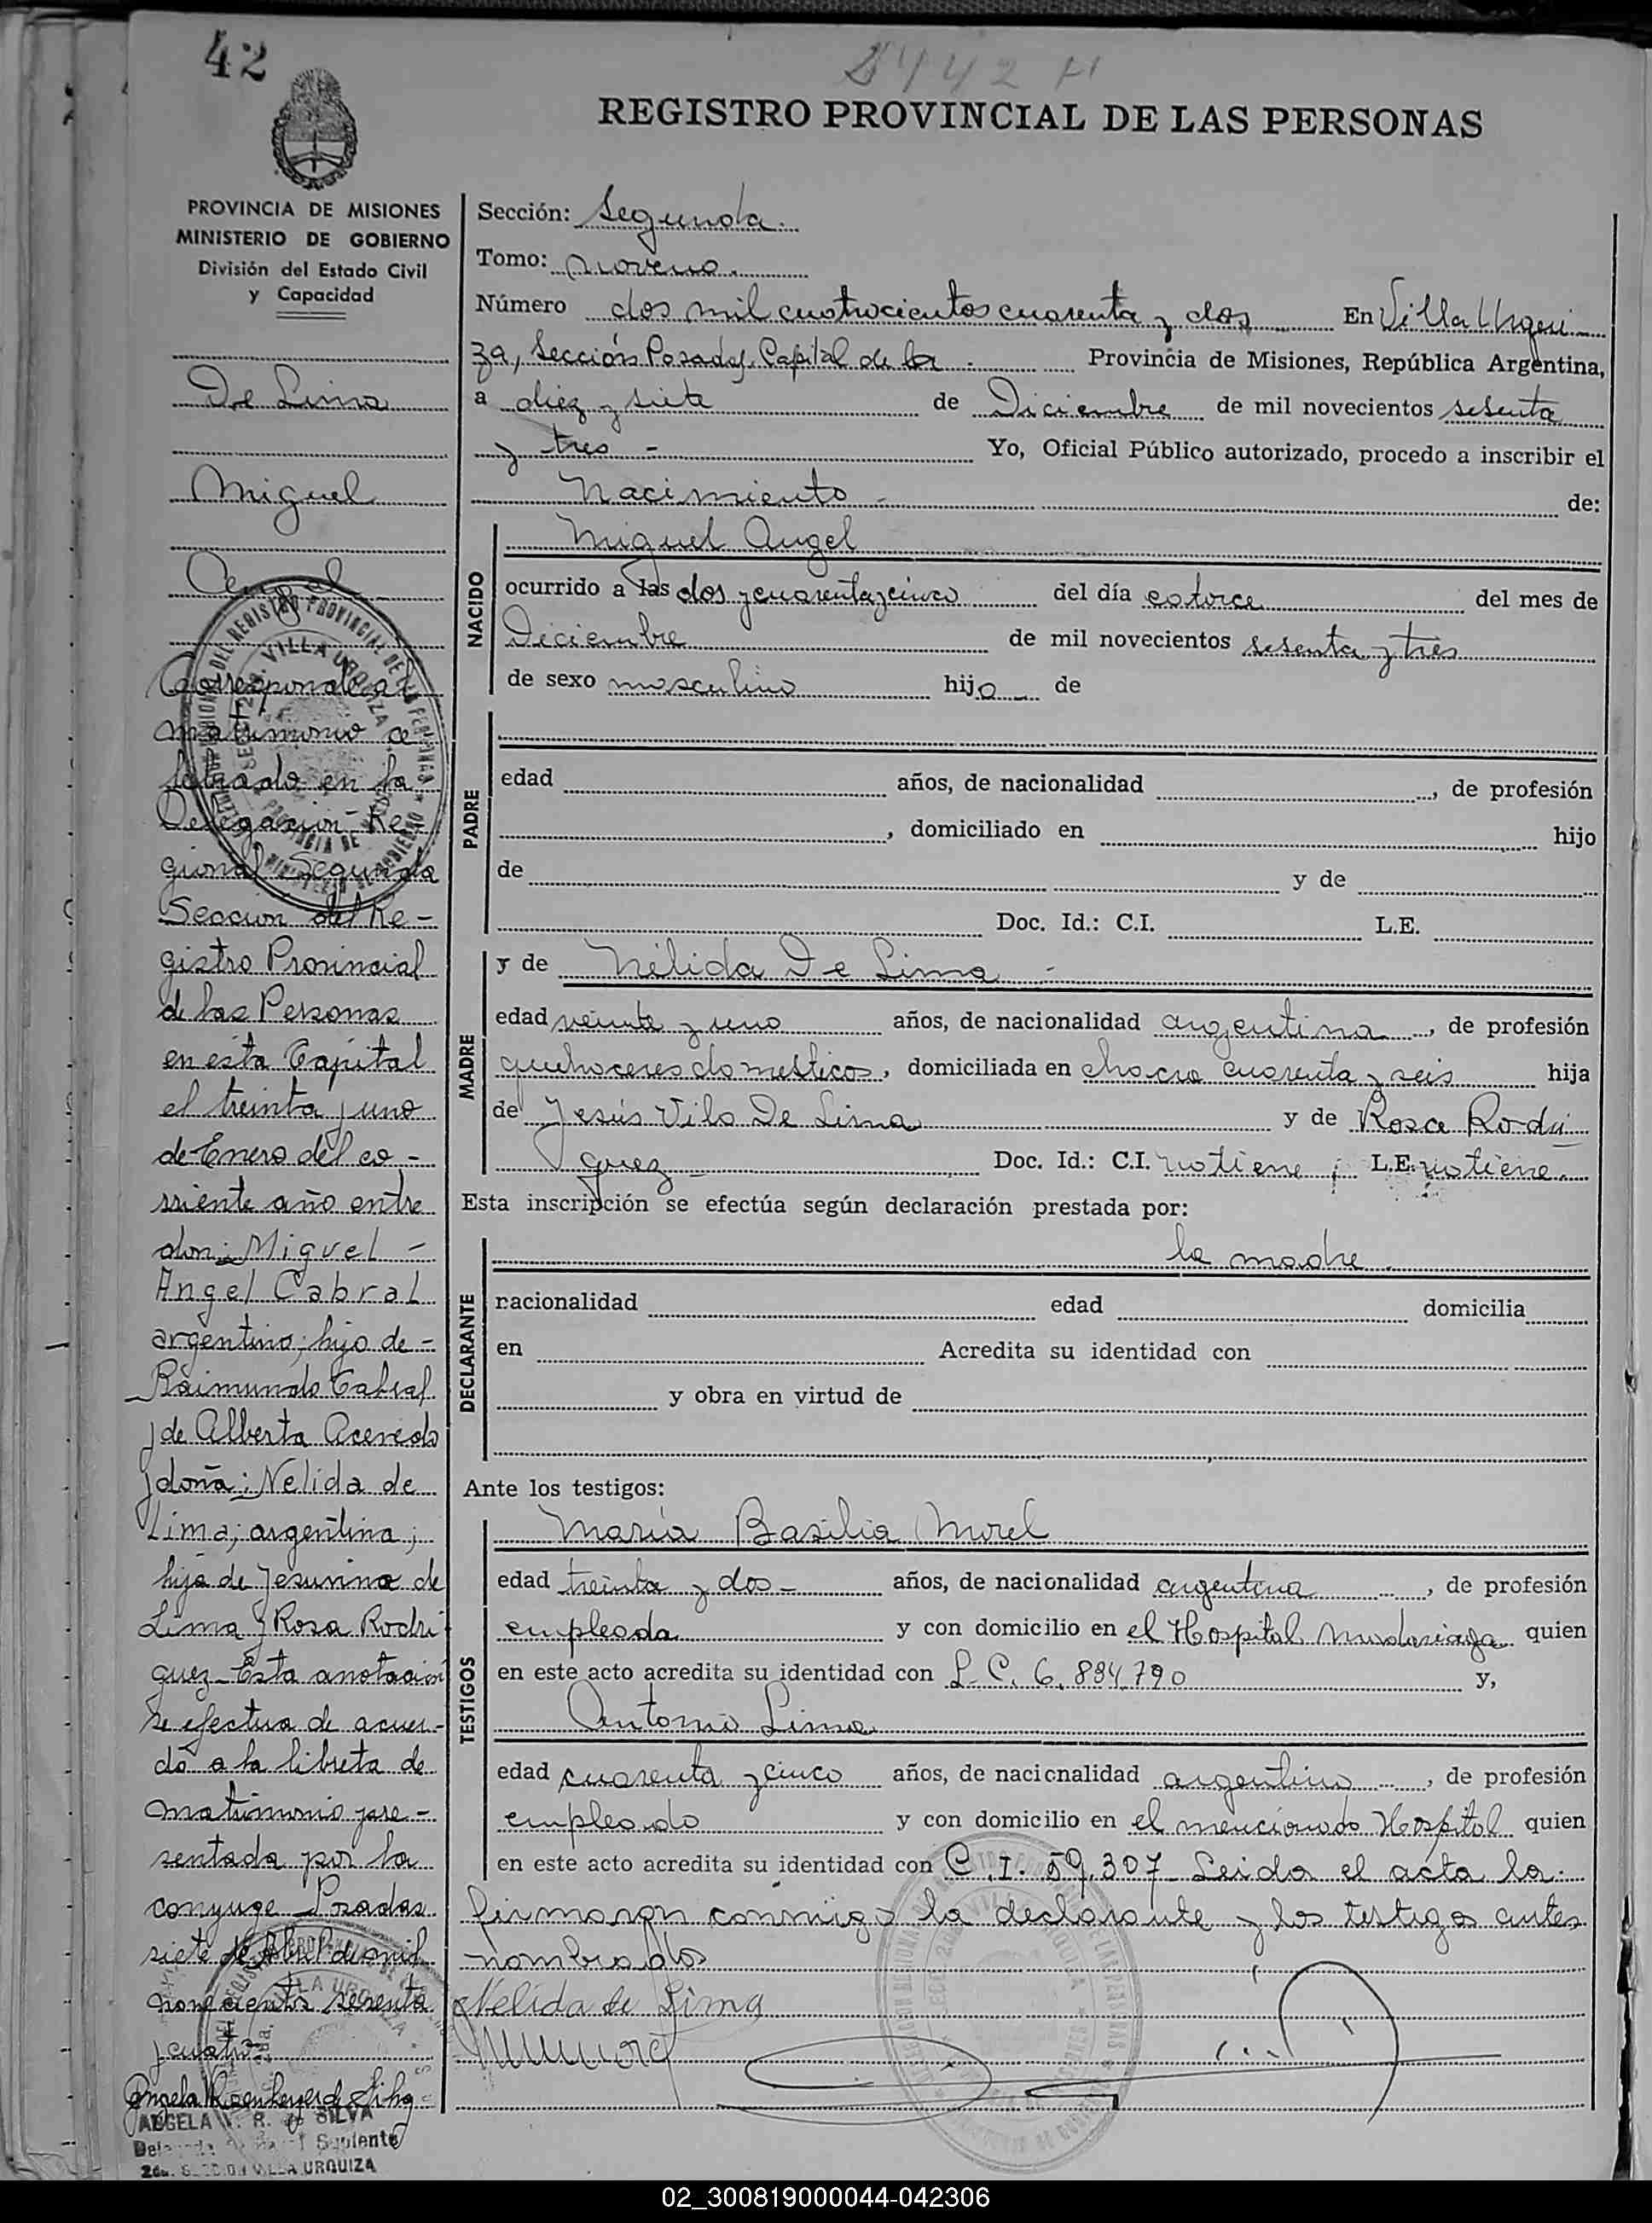 42
2442 H
REGISTRO PROVINCIAL DE LAS PERSONAS
PROVINCIA DE MISIONES
MINISTERIO DE GOBIERNO
División del Estado Civil
y Capacidad
De Lima
Miguel
Angel
Corresponde al
matrimonio ce
lebrado en la
Delegación Re-
gional Segunda
Seccion del Re-
gistro Provincial
de las Personas
en esta Capital
el treinta y uno
de Enero del co-
rriente año entre
don: Miguel -
Angel Cabral
argentino; hijo de -
Raimundo Cabral
y de Alberta Acevedo
y doña: Nelida de
Lima; argentina;
hija de Jesuvino de
Lima y Rosa Rodri
guez. Esta anotación
se efectua de acuer-
do a la libreta de
matrimonio pre-
sentada por la
conyuge - Posadas
siete de Abril de mil
novecientos sesenta
y cuatro
ANGELA V. R. de SILVA
Suplente
2da. SECCION VILLA URQUIZA
Sección: Segunda.
Tomo: noveno.
Número dos mil cuatrocientos cuarenta y dos En Villa Urqui-
za, Sección Posadas, Capital de la - Provincia de Misiones, República Argentina,
a diez y siete de Diciembre de mil novecientos sesenta
y tres - Yo, Oficial Público autorizado, procedo a inscribir el
nacimiento - de:
NACIDO
Miguel Angel
ocurrido a las dos y cuarenta y cinco del día catorce del mes de
Diciembre de mil novecientos sesenta y tres
de sexo masculino hijo - de
PADRE
edad años, de nacionalidad , de profesión
, domiciliado en hijo
de y de
Doc. Id.: C.I. L.E.
MADRE
y de Nélida De Lima -
edad veinte y uno años, de nacionalidad argentina , de profesión
quehaceres domesticos, domiciliada en chacra cuarenta y seis hija
de Jesús Vilo De Lima y de Rosa Rodri
guez - Doc. Id.: C.I. no tiene ; L.E. no tiene.
Esta inscripción se efectúa según declaración prestada por:
DECLARANTE
la madre.
nacionalidad edad domicilia
en Acredita su identidad con
y obra en virtud de
Ante los testigos:
TESTIGOS
María Basilia Morel
edad treinta y dos - años, de nacionalidad argentina , de profesión
empleada y con domicilio en el Hospital Madariaga quien
en este acto acredita su identidad con L.C. 6.834.790 y,
Antonio Lima
edad cuarenta y cinco años, de nacionalidad argentino , de profesión
empleado y con domicilio en el mencionado Hospital quien
en este acto acredita su identidad con C.I. 59.307 - Leida el acta la
firmaron conmigo la declarante y los testigos antes
nombrados
Nelida de Lima
02_300819000044-042306